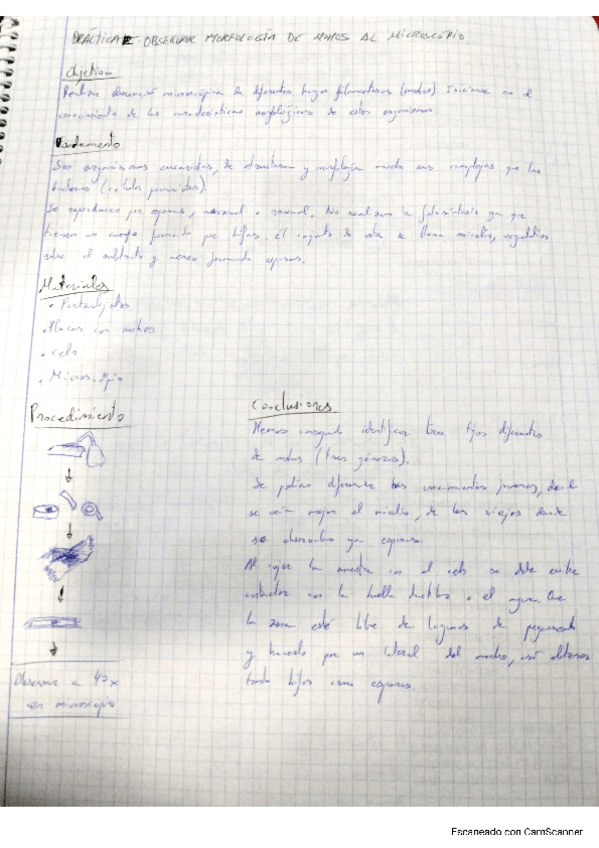 PRÁCTICA - OBSERVAR MORFOLOGÍA DE MOHOS AL MICROSCOPIO.
Objetivo
Realizar observación microscópica de diferentes hongos filamentosos (mohos) Iniciarse en el
conocimiento de las características morfológicas de estos organismos
Fundamento
Son organismos eucariotas, de estructura y morfología mucho mas complejas que las
bacterias (células procariotas).
Se reproducen por esporas, asexual o sexual. No realizan la fotosíntesis ya que
tienen un cuerpo formado por hifas. El conjunto de estas se llama micelio, vegetativo
sobre el sustrato y aereo formando esporas.
Materiales
• Portaobjetos
• Placas con mohos
• celo
• Microscópio
Procedimiento
Observar a 40x
en microscopio
Conclusiones
Hemos conseguido identificar tres tipos diferentes
de mohos (tres géneros).
Se podían diferenciar los crecimientos jovenes, donde
se veía mejor el micelio, de los viejos donde
se observaban ya esporas.
Al coger la muestra con el celo se debe evitar
contactar con la huella dactilar o el agua. Que
la zona esté libre de lagunas de pegamento
y hacerlo por un lateral del moho, así obtenemos
tanto hifas como esporas.
Escaneado con CamScanner